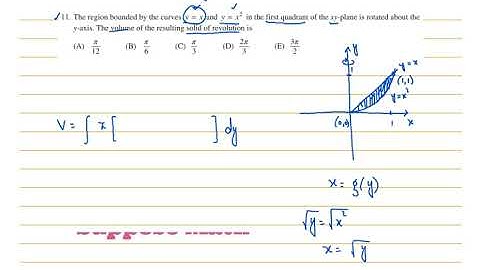 11. The region bounded by the curves y = x and y = x² in the first quadrant of the xy-plane is rotated about the
y-axis. The volume of the resulting solid of revolution is
(A) π/12 (B) π/6 (C) π/3 (D) 2π/3 (E) 3π/2
y
1
y = x
(1,1)
y = x²
(0,0) 1 x
V = ∫ π [ ] dy
x = g(y)
√y = √x²
x = √y